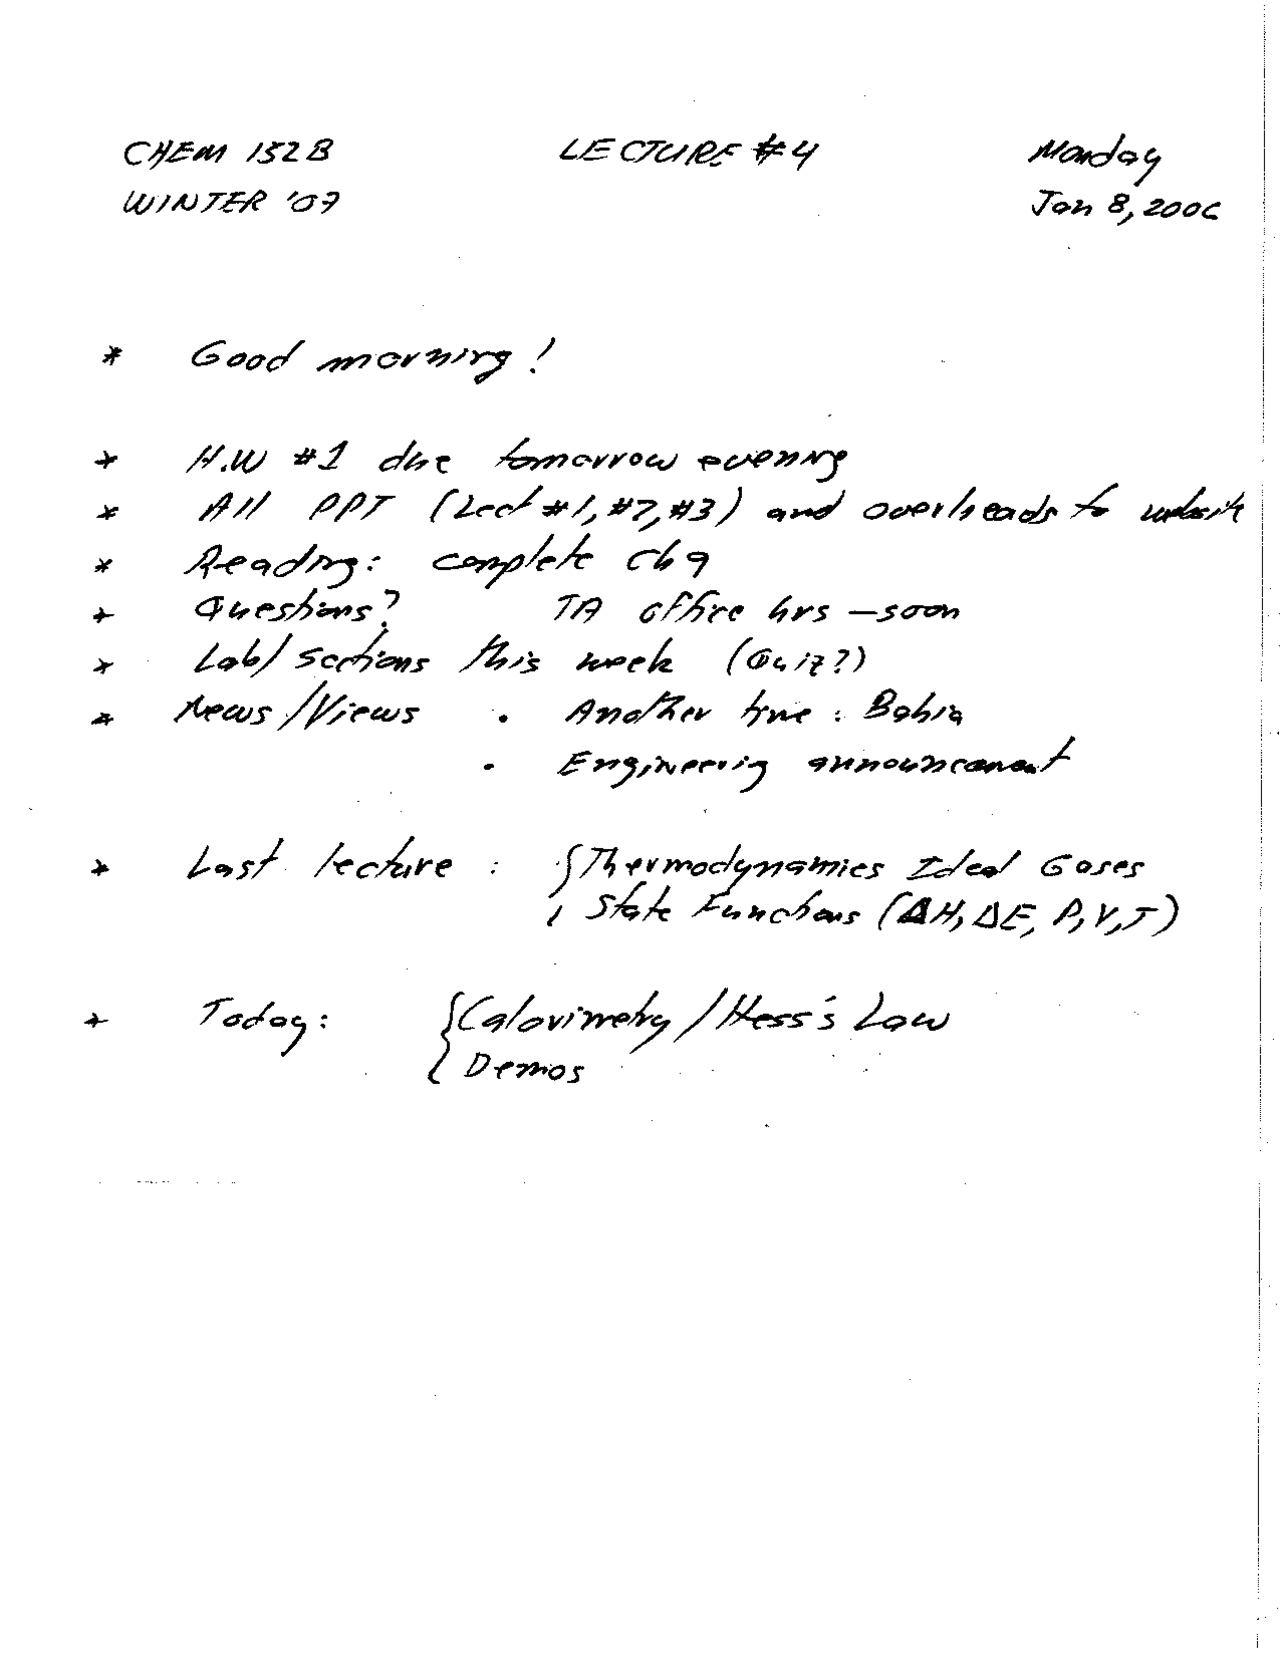 CHEM 152B LECTURE #4 Monday
WINTER '07 Jan 8, 2006
* Good morning!
* H.W #1 due tomorrow evening
* All PPT (Lect #1, #2, #3) and overheads to website
* Reading: complete Ch 9
* Questions? TA office hrs – soon
* Lab/Sections this week (Quiz?)
* News/Views • Another time: Bahia
• Engineering announcement
* Last lecture: { Thermodynamics Ideal Gases
State Functions (ΔH, ΔE, P, V, T)
* Today: { Calorimetry / Hess's Law
Demos